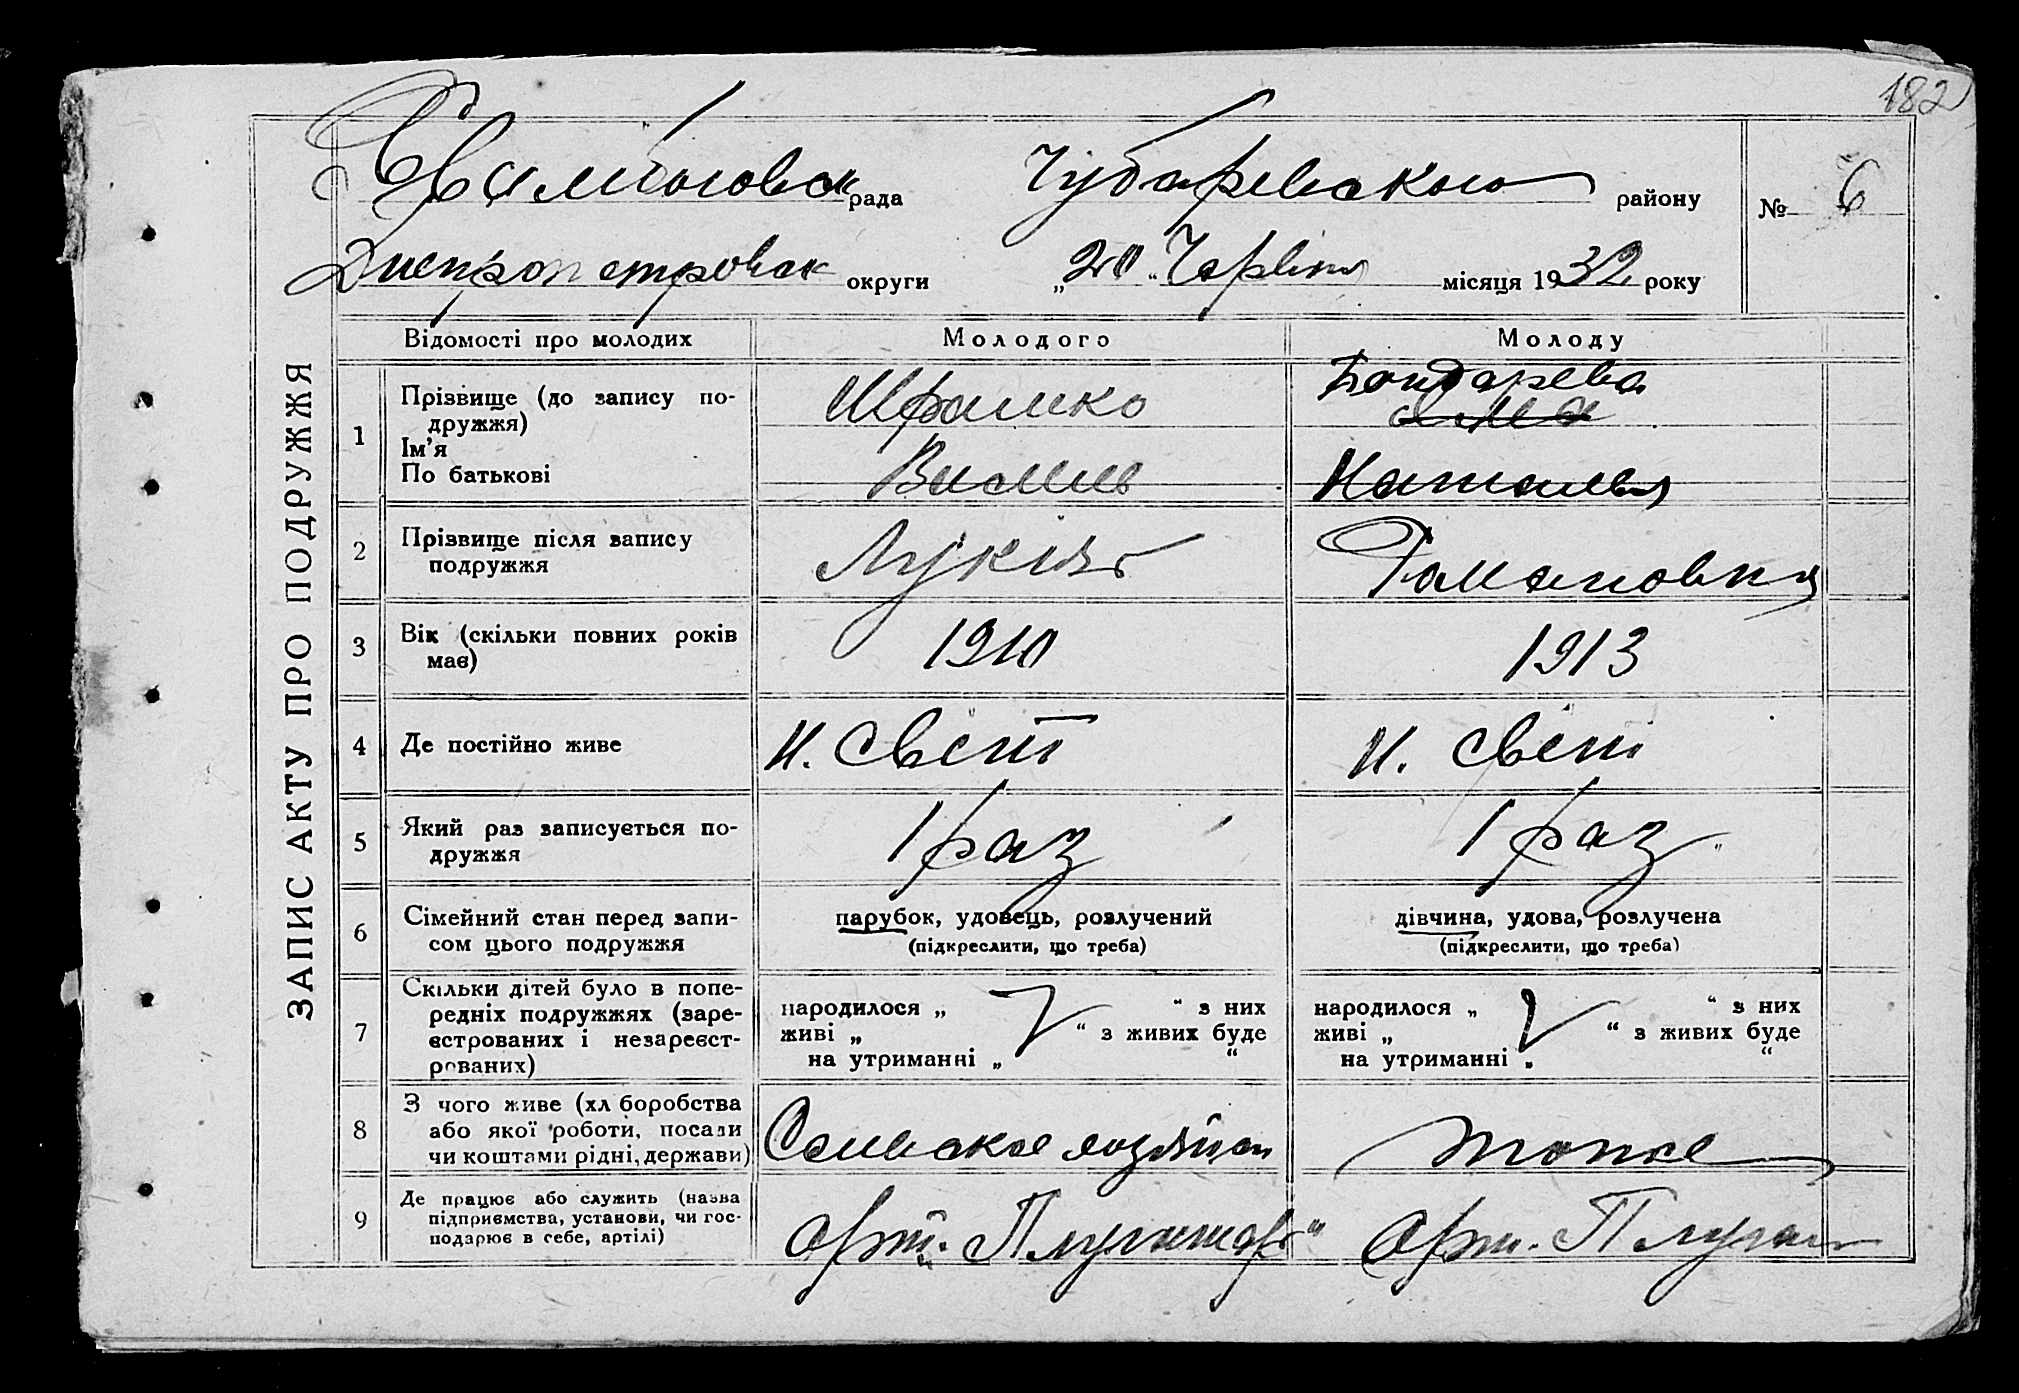 182
рада Чубаревского району № 6
Днепропетровск округи „20" Червня місяця 1932 року
ЗАПИС АКТУ ПРО ПОДРУЖЖЯ
Відомості про молодих Молодого Молоду
1 Прізвище (до запису по-
дружжя)
Ім'я
По батькові
Бондарева
Василь Наталья
2 Прізвище після запису
подружжя
Лукіяв Романовна
3 Вік (скільки повних років
має)
1910 1913
4 Де постійно живе Н. Світ Н. Світ
5 Який раз записується по-
дружжя
1 раз 1 раз
6 Сімейний стан перед запи-
сом цього подружжя
парубок, удовець, розлучений
(підкреслити, що треба)
дівчина, удова, розлучена
(підкреслити, що треба)
7 Скільки дітей було в попе-
редніх подружжях (заре-
єстрованих і незареєст-
рованих)
народилося „ " з них
живі „ " з живих буде
на утриманні „ "
народилося „ " з них
живі „ " з живих буде
на утриманні „ "
8 З чого живе (хл боробства
або якої роботи, посади
чи коштами рідні, держави)
Сельское тоже
9 Де працює або служить (назва
підприємства, установи, чи гос-
подарює в себе, артілі)
Арт. Арт.